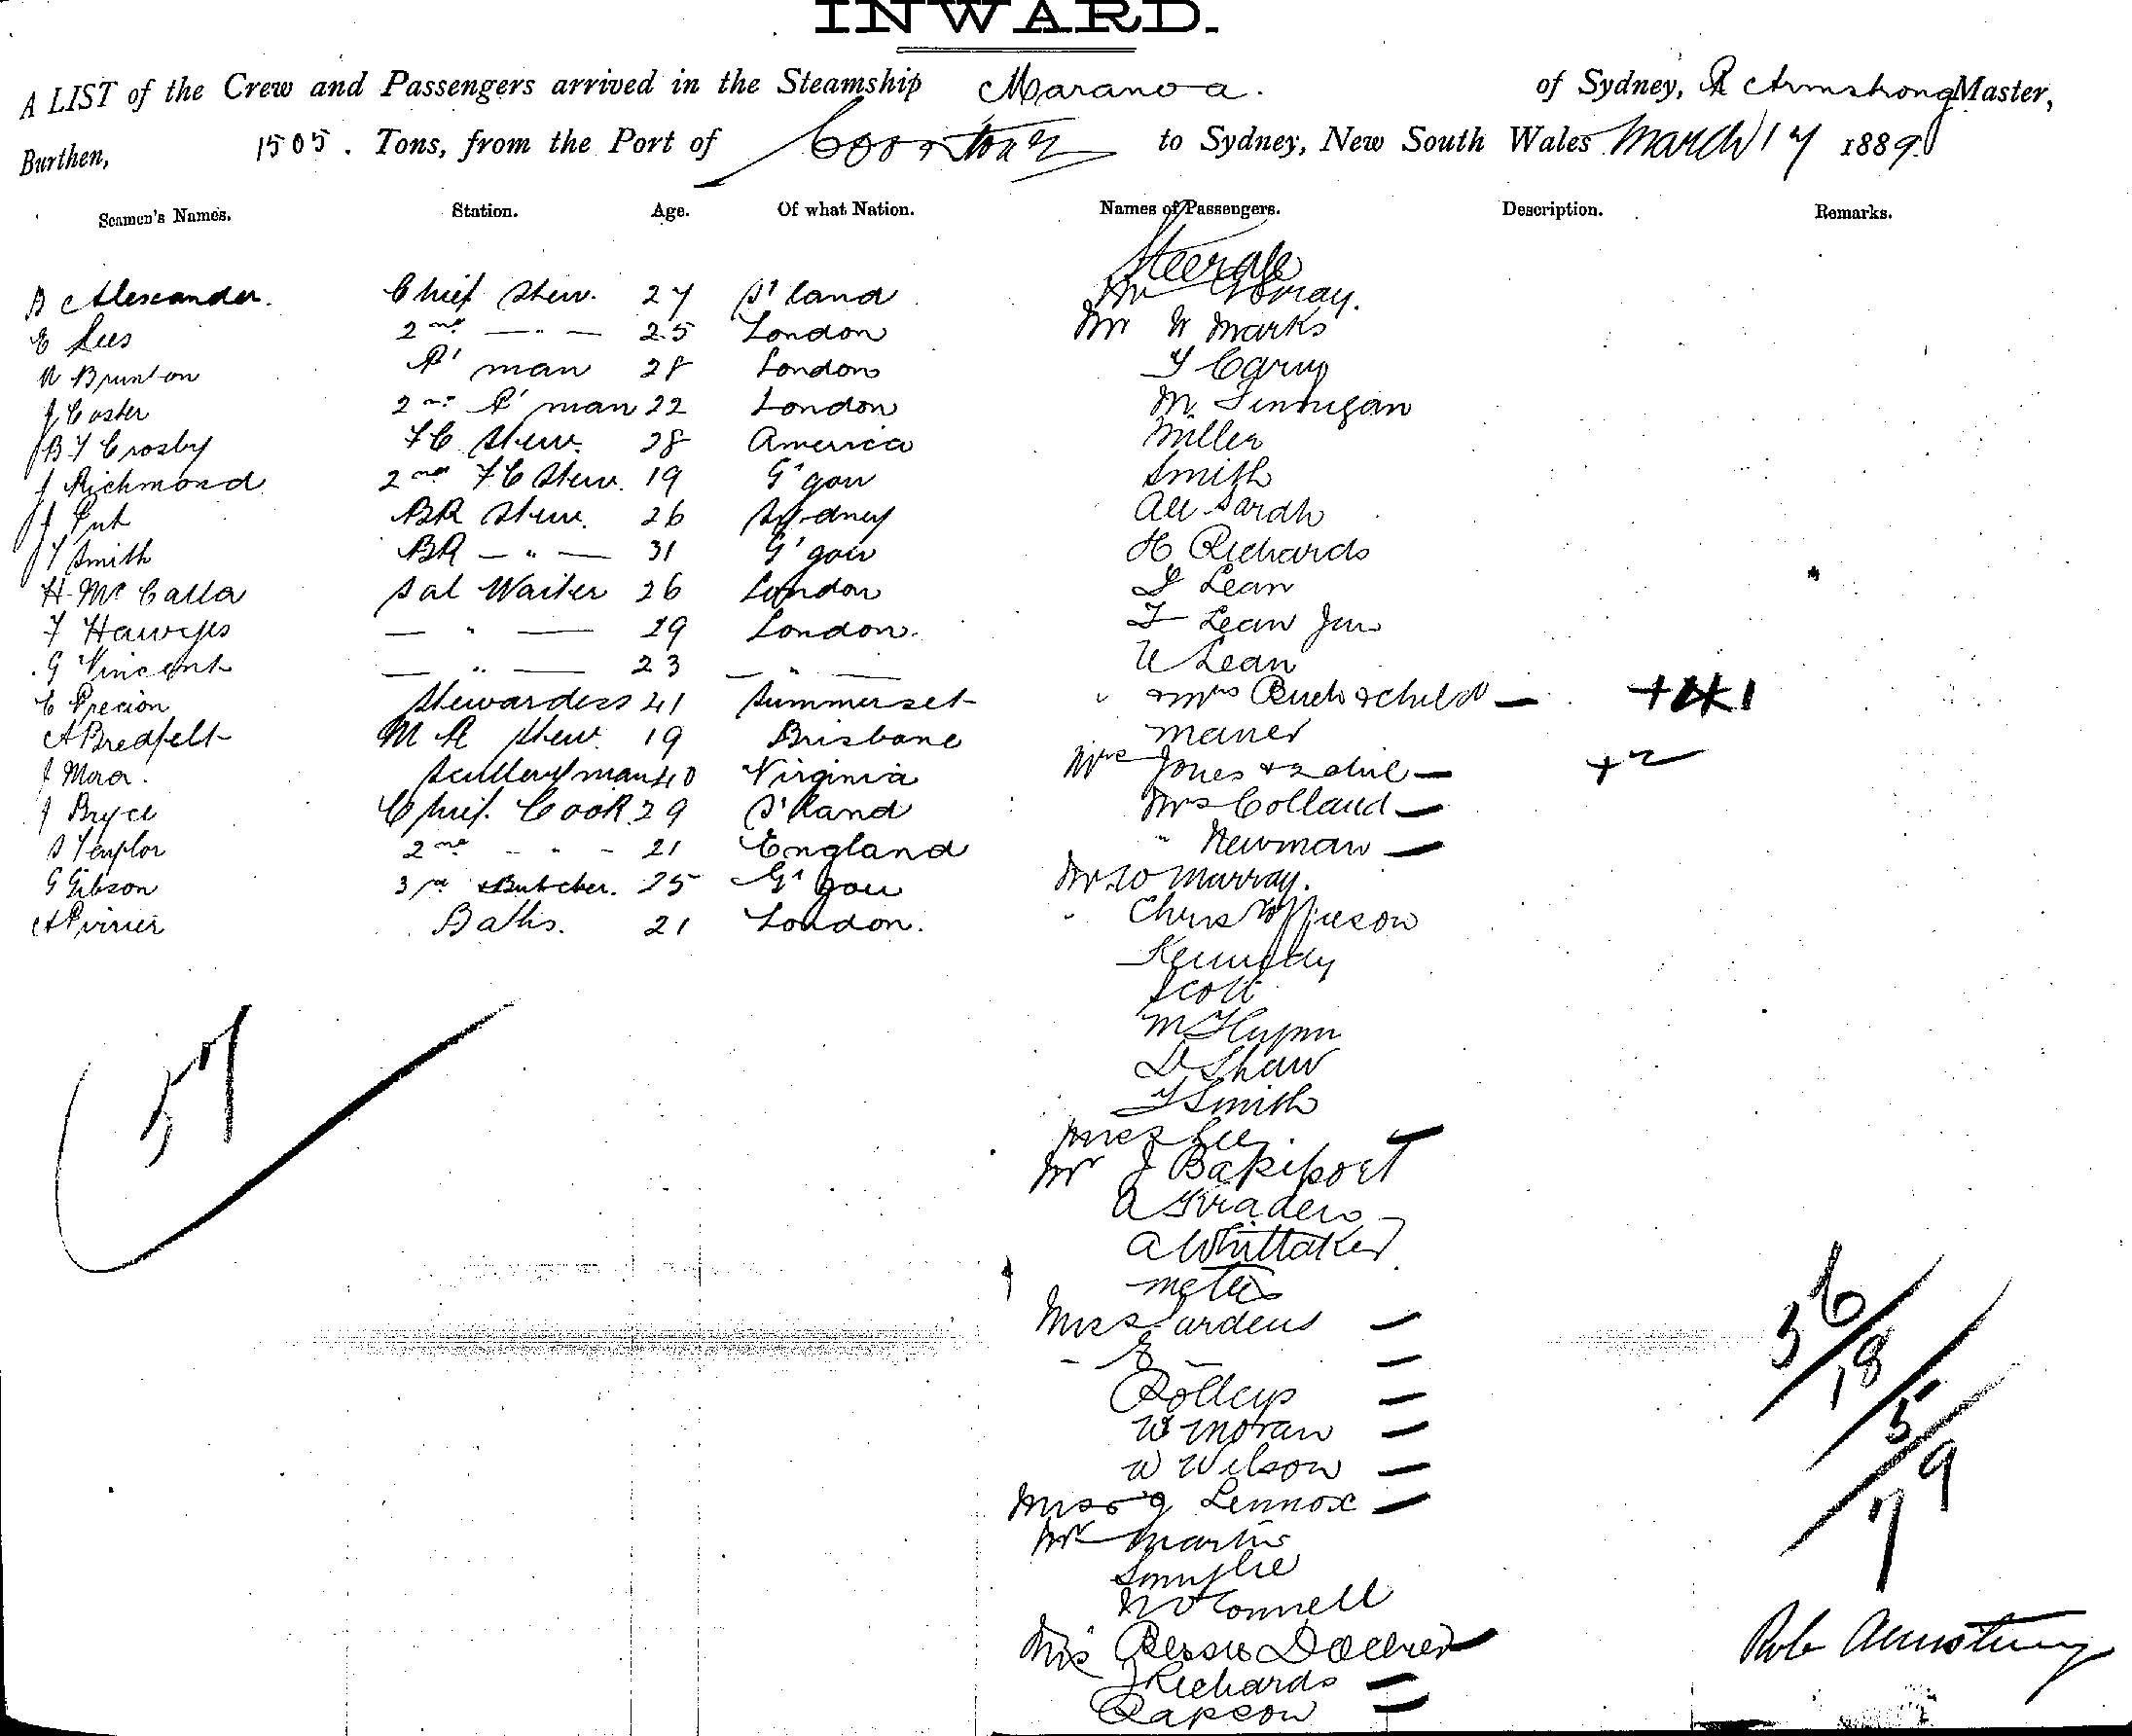 INWARD.
A LIST of the Crew and Passengers arrived in the Steamship Maranoa. of Sydney, R Armstrong Master,
Burthen, 1505. Tons, from the Port of to Sydney, New South Wales March 17 1889.
Seamen's Names. Station. Age. Of what Nation. Names of Passengers. Description. Remarks.
Steerage
B Alexander. Chief Stew. 27 S'land Mr Gray.
E Lees 2nd — " — 25 London Mr W Marks
W Brunton P' man 28 London
J Coster 2nd P' man 22 London M. Finnigan
B Y Crosby FC Stew. 28 America Miller
J Richmond 2nd FC Stew. 19 G'gow Smith
J BR Stew. 26 Sydney
Y Smith BR — " — 31 G'gow H Richards
H Mc Calla Sal Waiter 26 London Lean
F — " — 29 London. Lean Jun
G Vincent — " — 23 — " — Lean
C Precion Stewardess 41 Summerset " Mrs & child — + 1
A Bredfelt M R Stew. 19 Brisbane
J Scullery man 40 Virginia Mrs Jones & 2 chil — + 2
J Bryce Chief. Cook 29 S'land Mrs Colland —
S Taylor 2nd - " - 21 England " Newman —
G Gibson 3rd & Butcher. 25 G'gow Mr W Murray.
A Baths. 21 London.
Kennedy
Scott
D Shaw
Smith
57
Miss
Mr J
A
A Whittaker
Miss —
- E - —
—
W Moran —
W Wilson —
Miss J Lennox —
Mr Martin
Smylie
McConnell
Bessie —
J Richards —
Rapson —
36
18
5
9
7
Rob Armstrong